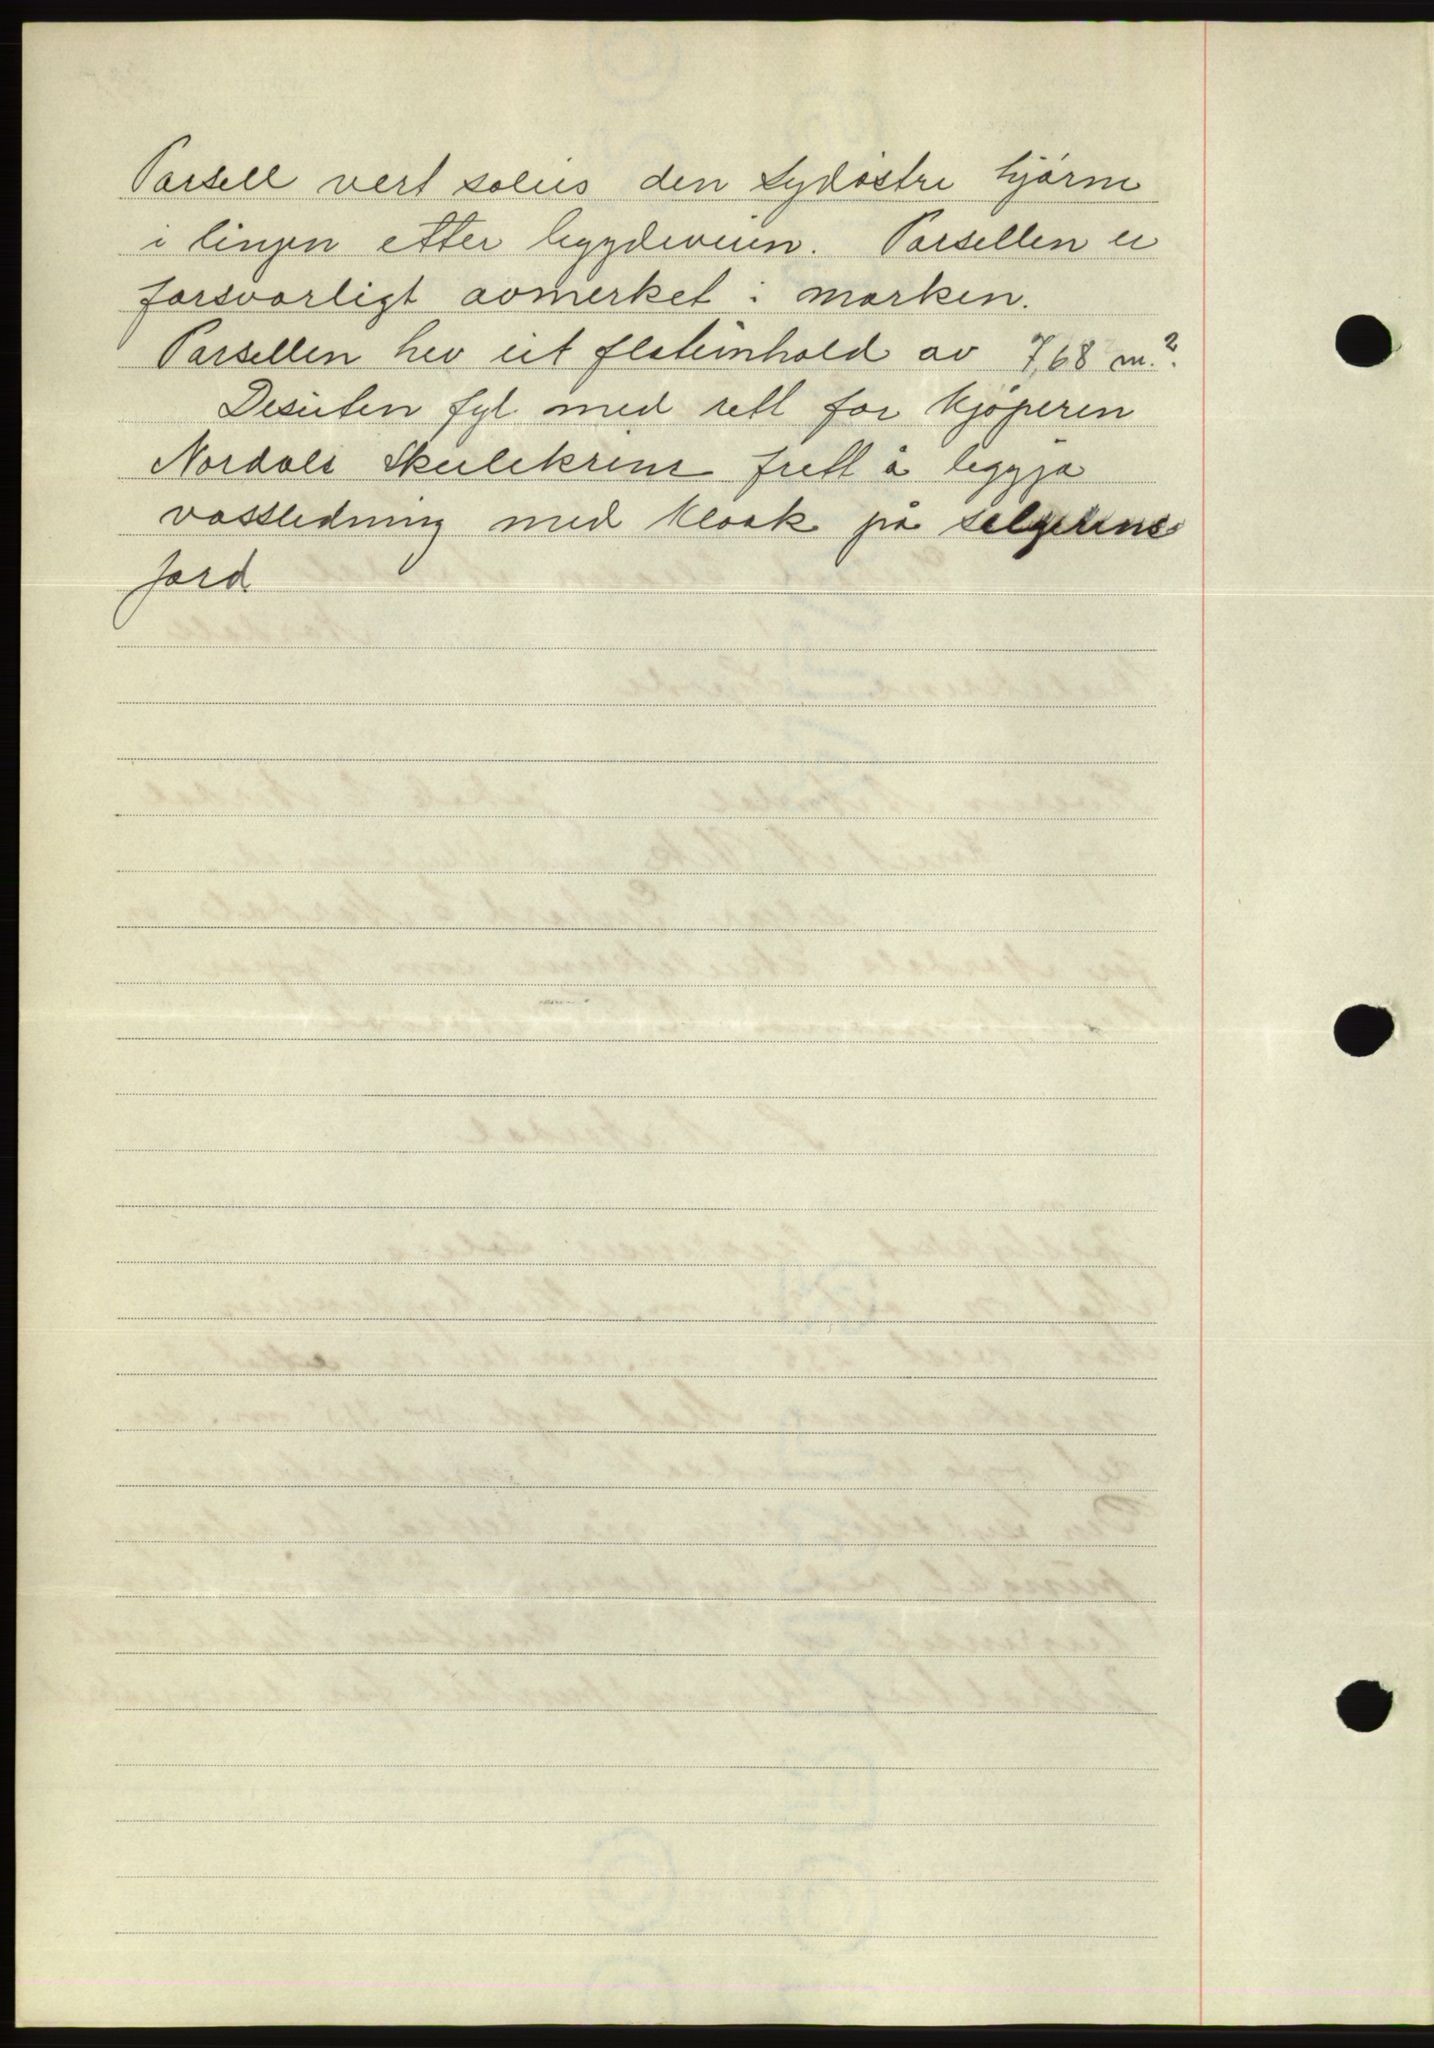 Parsell vert soleis den sydöstre hjörne
i linjen etter bygdeveien. Parsellen er
forsvarligt avmerket i marken.
Parsellen hev eit flateinhold av 7,68 m.².
Desuten fyl med rett for kjöperen
Nordals Skulekrins frett å leggja
vassledning med kloak på selgerens
jord